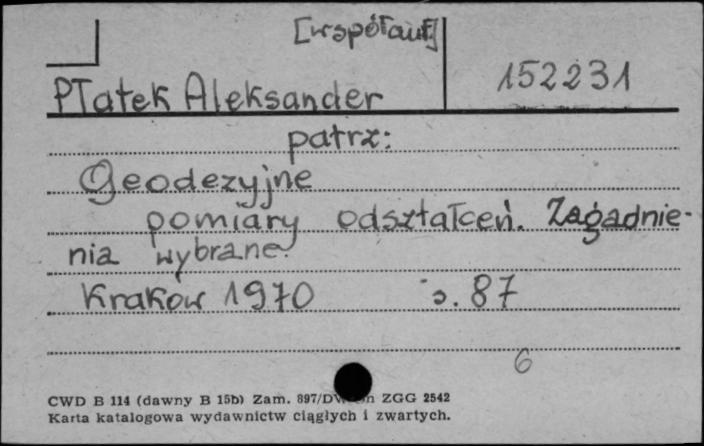 [współaut]
Płatek Aleksander 152231
patrz:
Geodezyjne
pomiary odształceń. Zagadnie-
nia wybrane.
Kraków 1970 s. 87
6
CWD B 114 (dawny B 15b) Zam. 897/ ZGG 2542
Karta katalogowa wydawnictw ciągłych i zwartych.